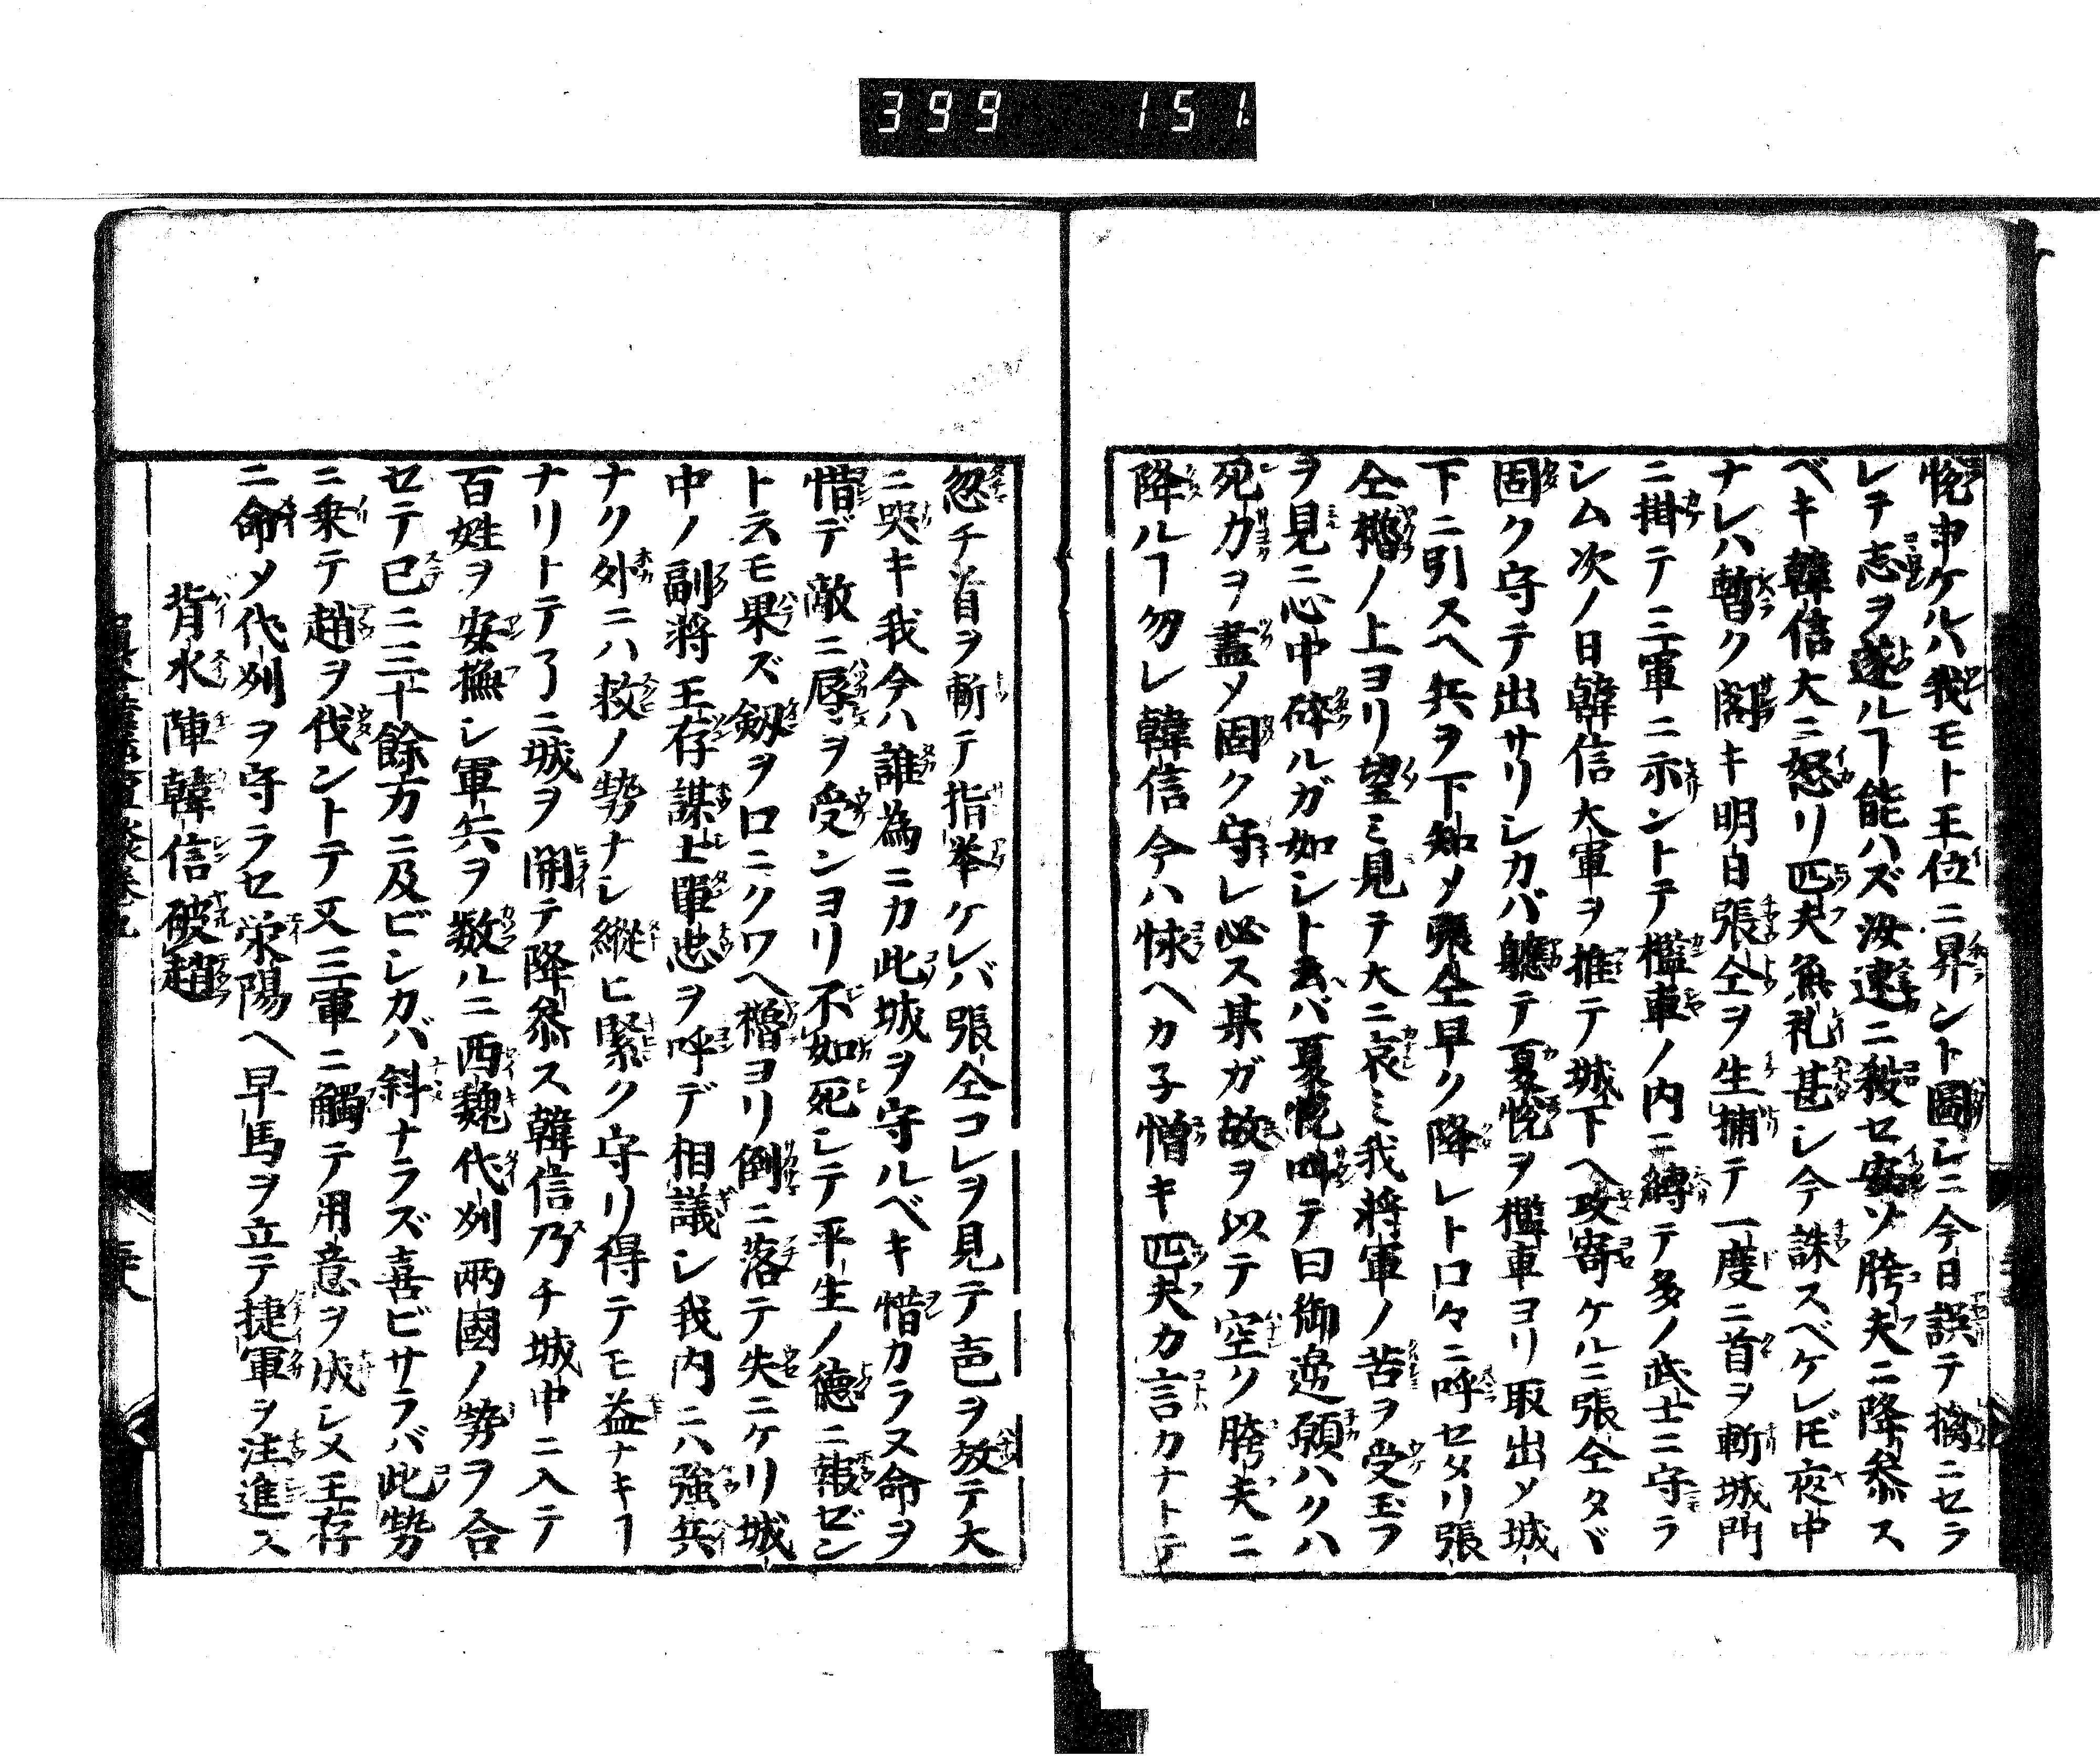 399 151
悦申ケルハ我モト王位ニ昇ント圖レニ今日誤テ擒ニセラ
レテ志ヲ遂ルヿ能ハズ汝速ニ殺セ安ソ胯夫ニ降参ス
ベキ韓信大ニ怒リ匹夫無礼甚レ今誅スベケレ𪜈夜中
ナレハ暫ク閣キ明日張仝ヲ生捕テ一度ニ首ヲ斬城門
ニ掛テ三軍ニ示ントテ檻車ノ内ニ縛テ多ノ武士ニ守ラ
シム次ノ日韓信大軍ヲ推テ城下ヘ攻寄ケルニ張仝タヾ
固ク守テ出サリレカバ軈テ夏悦ヲ檻車ヨリ取出メ城
下ニ引スヘ兵ヲ下知メ張仝早ク降レト口々ニ呼セタリ張
仝櫓ノ上ヨリ望ミ見テ大ニ哀ミ我将軍ノ苦ヲ受玉フ
ヲ見ニ心中碎ルガ如シト云バ夏悦叫テ曰御邊願ハクハ
死力ヲ盡メ固ク守レ必ス某ガ故ヲ以テ空ソ胯夫ニ
降ルヿ勿レ韓信今ハ怺ヘカ子憎キ匹夫カ言カナトテ
忽チ首ヲ斬テ指挙ケレバ張仝コレヲ見テ声ヲ放テ大
ニ哭キ我今ハ誰為ニカ此城ヲ守ルベキ惜カラス命ヲ
惜デ敵ニ辱ヲ受ンヨリ不如死レテ平生ノ徳ニ報ゼン
ト云モ果ズ劔ヲ口ニクワヘ櫓ヨリ倒ニ落テ失ニケリ城
中ノ副将王存謀士單忠ヲ呼デ相議シ我内ニハ強兵
ナク外ニハ救ノ勢ナレ縦ヒ緊ク守リ得テモ益ナキヿ
ナリトテ了ニ城ヲ開テ降参ス韓信乃チ城中ニ入テ
百姓ヲ安撫レ軍兵ヲ数ルニ西魏代州兩國ノ勢ヲ合
セテ已ニ三十餘万ニ及ビレカバ斜ナラズ喜ビサラバ此勢
ニ乗テ趙ヲ伐ントテ又三軍ニ觸テ用意ヲ成レメ王存
ニ命メ代州ヲ守ラセ栄陽ヘ早馬ヲ立テ捷軍ヲ注進ス
背水陣韓信破趙